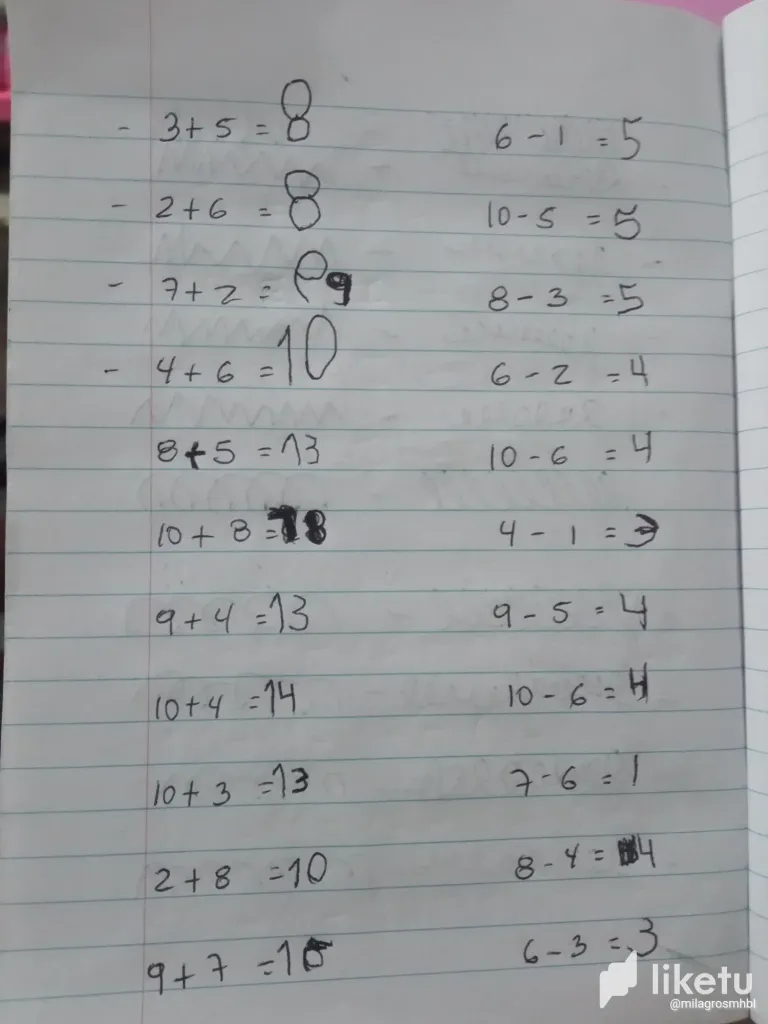 - 3 + 5 = 8 6 - 1 = 5
- 2 + 6 = 8 10 - 5 = 5
- 7 + 2 = 9 8 - 3 = 5
- 4 + 6 = 10 6 - 2 = 4
8 + 5 = 13 10 - 6 = 4
10 + 8 = 18 4 - 1 = 3
9 + 4 = 13 9 - 5 = 4
10 + 4 = 14 10 - 6 = 4
10 + 3 = 13 7 - 6 = 1
2 + 8 = 10 8 - 4 = 4
9 + 7 = 6 - 3 = 3
liketu
@milagrosmhbl